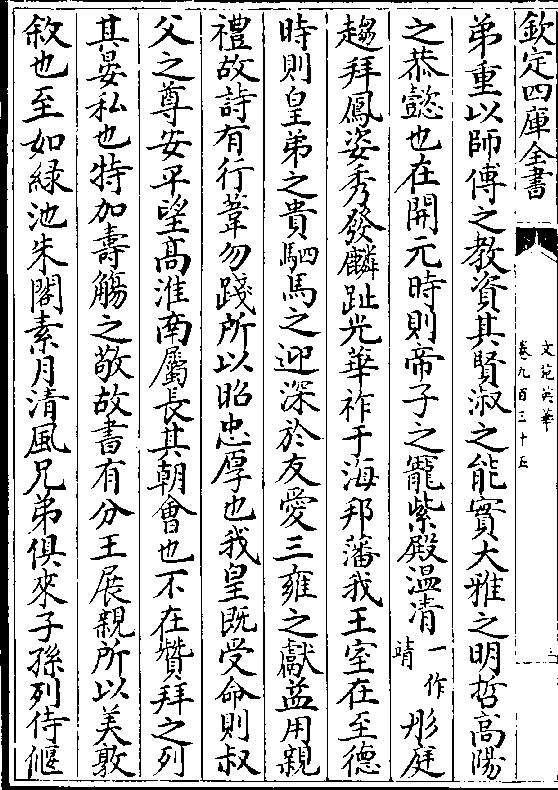 欽定四庫全書
文苑英華
卷九百三十五
弟重以師傅之教資其賢淑之能實大雅之明哲高陽
之恭懿也在開元時則帝子之寵紫殿温凊一作靖彤庭
趨拜鳳姿秀發麟趾光華祚于海邦藩我王室在至德
時則皇弟之貴駟馬之迎深於友愛三雍之獻益用親
禮故詩有行葦勿踐所以昭忠厚也我皇既受命則叔
父之尊安平望高淮南屬長其朝會也不在贊拜之列
其宴私也特加壽觴之敬故書有分王展親所以美敦
敘也至如緑池朱閣素月清風兄弟俱來子孫列侍偃